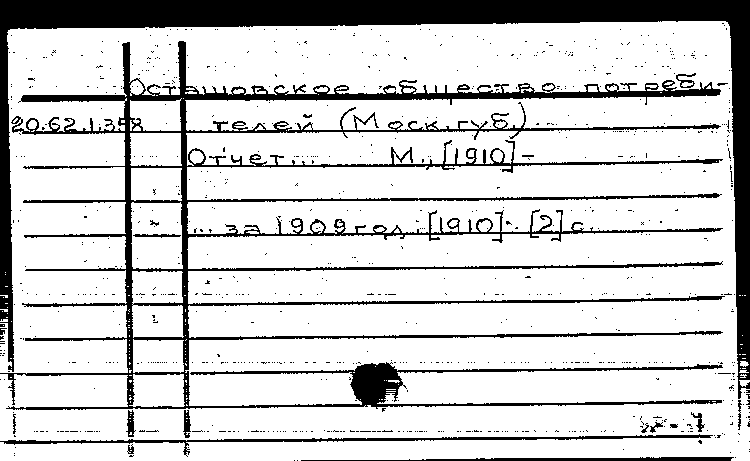 Осташовское общество потреби-
20.62.1.358 телей (Моск.губ.)
Отчет... М., [1910]-
... за 1909 год. [1910]. [2] с.